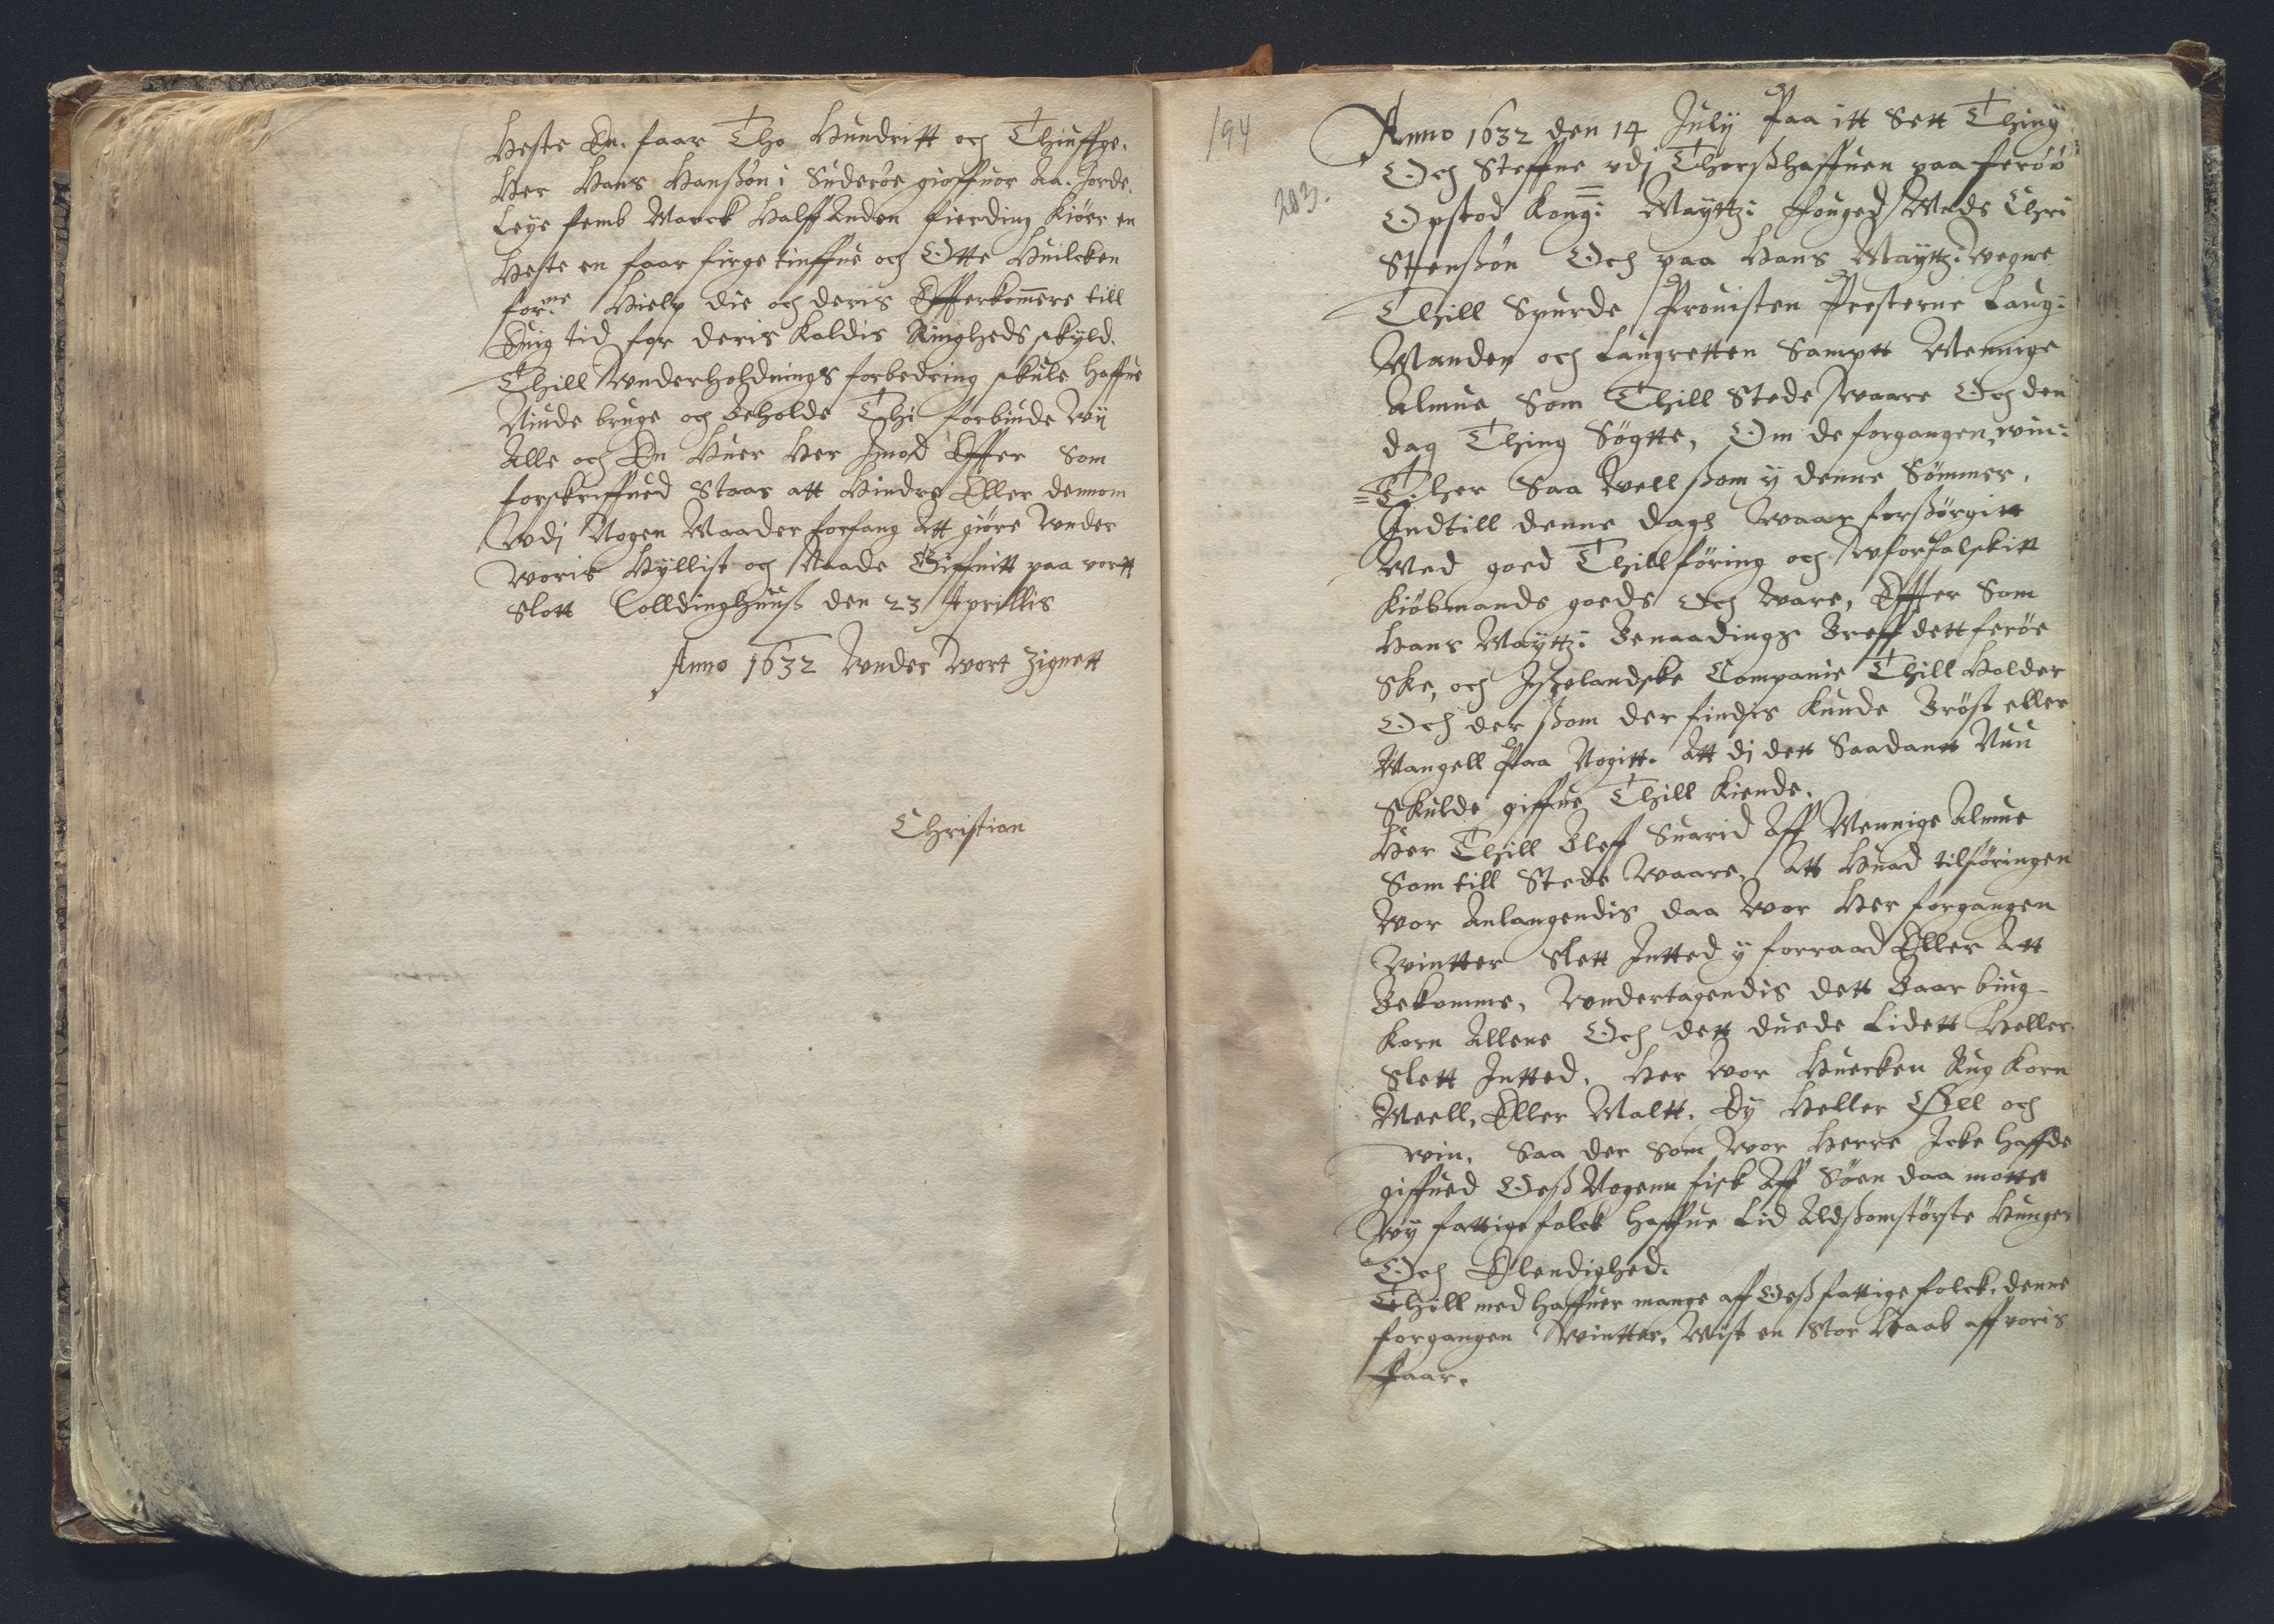 Heste En. faar Tho Hundritt och Thiuffge.
Her Hans Hanßøn i Suderøe gioffuor Aa. Jorde.
Leye femb Marck Halff Anden fierding kiøer en
Heste en faar firge tiuffue och Otte Huilcken
for:ne Hielp die och deris Effterkommere till
Euig tid for deris Kaldis Ringheds skyld.
Thill Wnderholdnings forbedring skule haffue
Niude bruge och Beholde Thi forbiude Wij
Alle och En Huer Her Imod Effter Som
forskriffued Staar att Hindre Eller dennom
Wdj Nogen Maader forfang Att giøre Wnder
Woris Hyllist och Naade Giffuitt paa vortt
Slott Colldinghuuß den 23 Aprillis
Anno 1632 Wnder Wort Zignett
Christian
194
203.
Anno 1632 den 14 Julij Paa itt Sett Thing
Och Steffne vdj Thorßhaffuen paa ferøø
Opstod Kong: Mayttz: Fouged Mads Chri
Stenßøn Och paa Hans Mayttz: Wegne
Thill Spurde Prouisten Presterne Laug:
Manden och Laugretten Samptt Mennige
Almue Som Thill Stede Waare Och den
dag Thing Søgtte, Om de forgangen win:
=Ther Saa Well ßom y denne Sømmer,
Indtill denne dagh Waar forßørgitt
Med goed Thillføring och Wforfalskitt
Kiøbmands goeds Och Ware, Effter Som
Hans Mayttz: Benaadings Breff dett ferøe
Ske, och Ißelandske Companie Thill Holder
Och der ßom der findis Kunde Brøst eller
Mangell Paa Nogitt. Att dj dett Saadantt Nuu
Skulde giffue Thill Kiende.
Her Thill Bleff Suarid Aff Mennige Almue
Som till Stede Waare, Att Huad tilføringen
Wor Anlangendis daa Wor Her forgangen
Wintter Slett Intted y forraad Eller Att
Bekomme, Wndertagendis dett Baar biug
Korn Allene Och dett duede Lidett Heller
Slett Intted. Her Wor Huercken Rug Korn
Meell, Eller Maltt. Ey Heller Øll och
win. Saa der Som Wor Herre Icke haffde
giffued Oeß Nogenn fisk Aff Søen daa motte
Wy fattige folck haffue Lid Aldßomstørste Hunger
Och Elendighed.
Thill med haffuer mange aff Oeß fattige folck, denne
forgangen Wintter, Mist en Stor Haab aff voris
Faar.